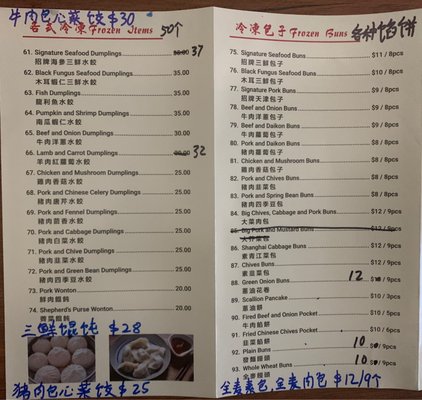 牛肉包心菜饺$30
各式冷凍 Frozen Items 50个
61. Signature Seafood Dumplings 37
招牌海參三鮮水餃
62. Black Fungus Seafood Dumplings 35.00
木耳蝦仁三鮮水餃
63. Fish Dumplings 35.00
龍利魚水餃
64. Pumpkin and Shrimp Dumplings 35.00
南瓜蝦仁水餃
65. Beef and Onion Dumplings 30.00
牛肉洋蔥水餃
66. Lamb and Carrot Dumplings 32
羊肉紅蘿蔔水餃
67. Chicken and Mushroom Dumplings 25.00
雞肉香菇水餃
68. Pork and Chinese Celery Dumplings 25.00
豬肉唐芹水餃
69. Pork and Fennel Dumplings 25.00
豬肉茴香水餃
70. Pork and Cabbage Dumplings 25.00
豬肉白菜水餃
71. Pork and Chive Dumplings 25.00
豬肉韭菜水餃
72. Pork and Green Bean Dumplings 25.00
豬肉四季豆水餃
73. Pork Wonton 20.00
鮮肉餛飩
74. Shepherd's Purse Wonton 20.00
薺菜餛飩
三鲜馄饨 $28
猪肉包心菜饺$25
冷凍包子 Frozen Buns 各种馅饼
75. Signature Seafood Buns $11 / 8pcs
招牌三鮮包子
76. Black Fungus Seafood Buns $10 / 8pcs
木耳三鮮包子
77. Signature Pork Buns $9 / 8pcs
招牌天津包子
78. Beef and Onion Buns $9 / 8pcs
牛肉洋蔥包子
79. Beef and Daikon Buns $9 / 8pcs
牛肉蘿蔔包子
80. Pork and Daikon Buns $8 / 8pcs
豬肉蘿蔔包子
81. Chicken and Mushroom Buns $8 / 8pcs
雞肉香菇包子
82. Pork and Chives Buns $8 / 8pcs
豬肉韭菜包
83. Pork and Spring Bean Buns $8 / 8pcs
豬肉四季豆包
84. Big Chives, Cabbage and Pork Buns $12 / 9pcs
大菜肉包
85. Big Pork and Mustard Buns $10 / 9pcs
大芥菜包
86. Shanghai Cabbage Buns $12 / 9pcs
素青江菜包
87. Chives Buns $12 / 9pcs
素韭菜包
88. Green Onion Buns 12 / 9pcs
蔥油花卷
89. Scallion Pancake $10 / 3pcs
蔥油餅
90. Fired Beef and Onion Pocket $10 / 5pcs
牛肉餡餅
91. Fried Chinese Chives Pocket $10 / 6pcs
韭菜餡餅
92. Plain Buns 10 / 9pcs
發麵饅頭
93. Whole Wheat Buns 10 / 9pcs
全麥饅頭
全麦素包,全麦肉包 $12/9个